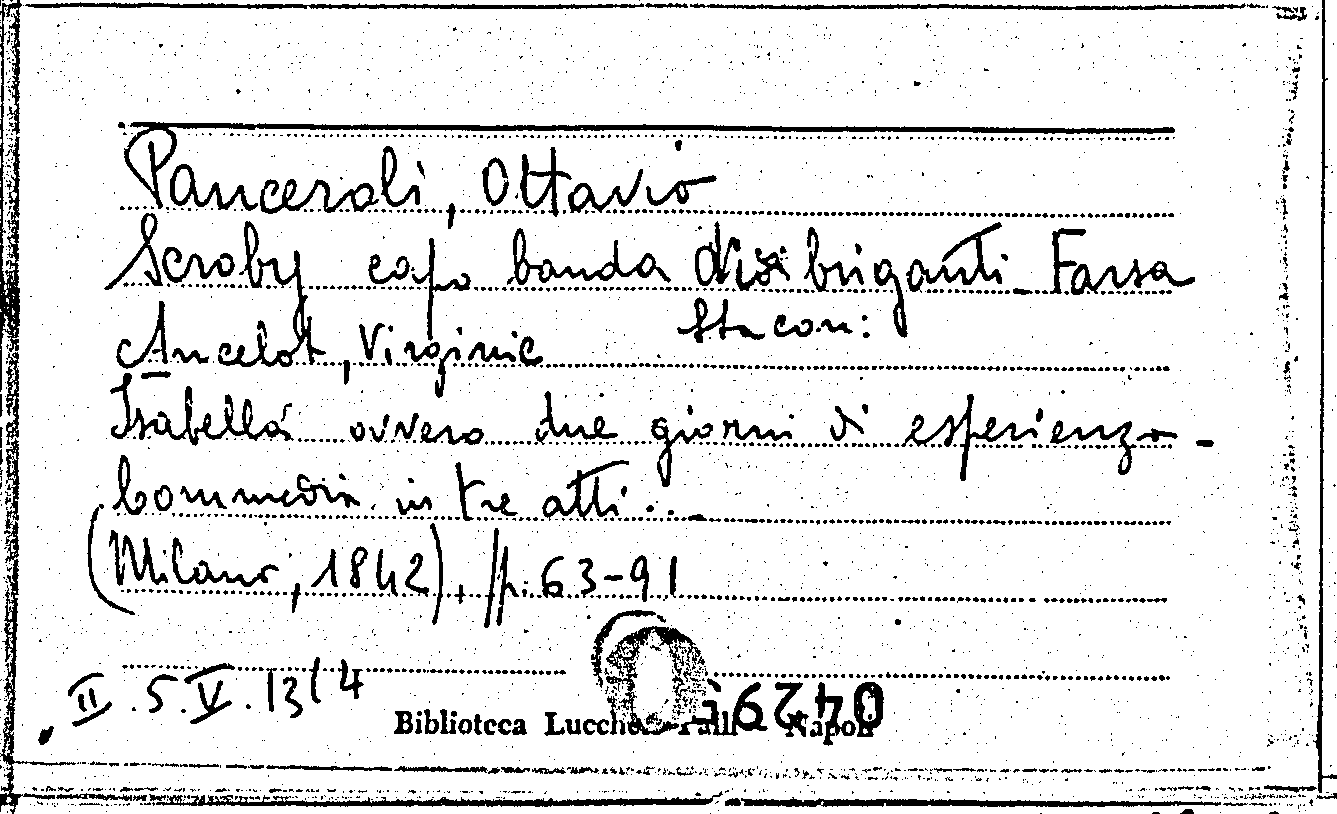 Panceroli, Ottavio
Scroby capo banda di briganti - Farsa
Sta con:
Ancelot, Virginie
Isabella ovvero due giorni di esperienza -
Commedia in tre atti...
(Milano, 1842), p. 63-91
II. 5. V. 13/4
Biblioteca Lucchesi Palli - Napoli